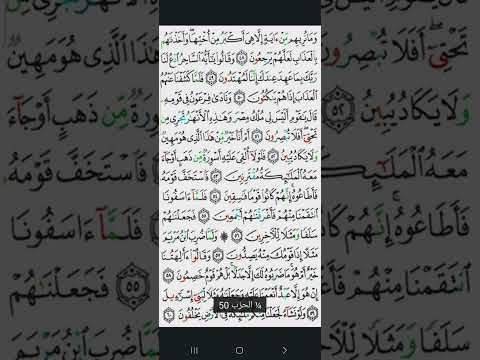 وَمَا نُرِيهِم مِّنْ ءَايَةٍ إِلَّا هِيَ أَكْبَرُ مِنْ أُخْتِهَا وَأَخَذْنَٰهُم
بِالْعَذَابِ لَعَلَّهُمْ يَرْجِعُونَ ٤٨ وَقَالُوا۟ يَٰٓأَيُّهَ السَّاحِرُ ادْعُ لَنَا
رَبَّكَ بِمَا عَهِدَ عِندَكَ إِنَّنَا لَمُهْتَدُونَ ٤٩ فَلَمَّا كَشَفْنَا عَنْهُمُ
الْعَذَابَ إِذَا هُمْ يَنكُثُونَ ٥٠ وَنَادَىٰ فِرْعَوْنُ فِي قَوْمِهِۦ
قَالَ يَٰقَوْمِ أَلَيْسَ لِي مُلْكُ مِصْرَ وَهَٰذِهِ الْأَنْهَٰرُ تَجْرِي مِن
تَحْتِيٓ أَفَلَا تُبْصِرُونَ ٥١ أَمْ أَنَا۠ خَيْرٌ مِّنْ هَٰذَا الَّذِي هُوَ مَهِينٌ
وَلَا يَكَادُ يُبِينُ ٥٢ فَلَوْلَآ أُلْقِيَ عَلَيْهِ أَسْوِرَةٌ مِّن ذَهَبٍ أَوْ جَآءَ
مَعَهُ الْمَلَٰٓئِكَةُ مُقْتَرِنِينَ ٥٣ فَاسْتَخَفَّ قَوْمَهُۥ
فَأَطَاعُوهُ إِنَّهُمْ كَانُوا۟ قَوْمًا فَٰسِقِينَ ٥٤ فَلَمَّآ ءَاسَفُونَا
انتَقَمْنَا مِنْهُمْ فَأَغْرَقْنَٰهُمْ أَجْمَعِينَ ٥٥ فَجَعَلْنَٰهُمْ
سَلَفًا وَمَثَلًا لِّلْءَاخِرِينَ ٥٦ ۞ وَلَمَّا ضُرِبَ ابْنُ مَرْيَمَ
مَثَلًا إِذَا قَوْمُكَ مِنْهُ يَصِدُّونَ ٥٧ وَقَالُوٓا۟ ءَأَٰلِهَتُنَا
خَيْرٌ أَمْ هُوَ مَا ضَرَبُوهُ لَكَ إِلَّا جَدَلًا بَلْ هُمْ قَوْمٌ خَصِمُونَ ٥٨
إِنْ هُوَ إِلَّا عَبْدٌ أَنْعَمْنَا عَلَيْهِ وَجَعَلْنَٰهُ مَثَلًا لِّبَنِيٓ إِسْرَٰٓءِيلَ
٥٩ وَلَوْ نَشَآءُ لَجَعَلْنَا مِنكُم مَّلَٰٓئِكَةً فِي الْأَرْضِ يَخْلُفُونَ ٦٠
¼ الحزب 50